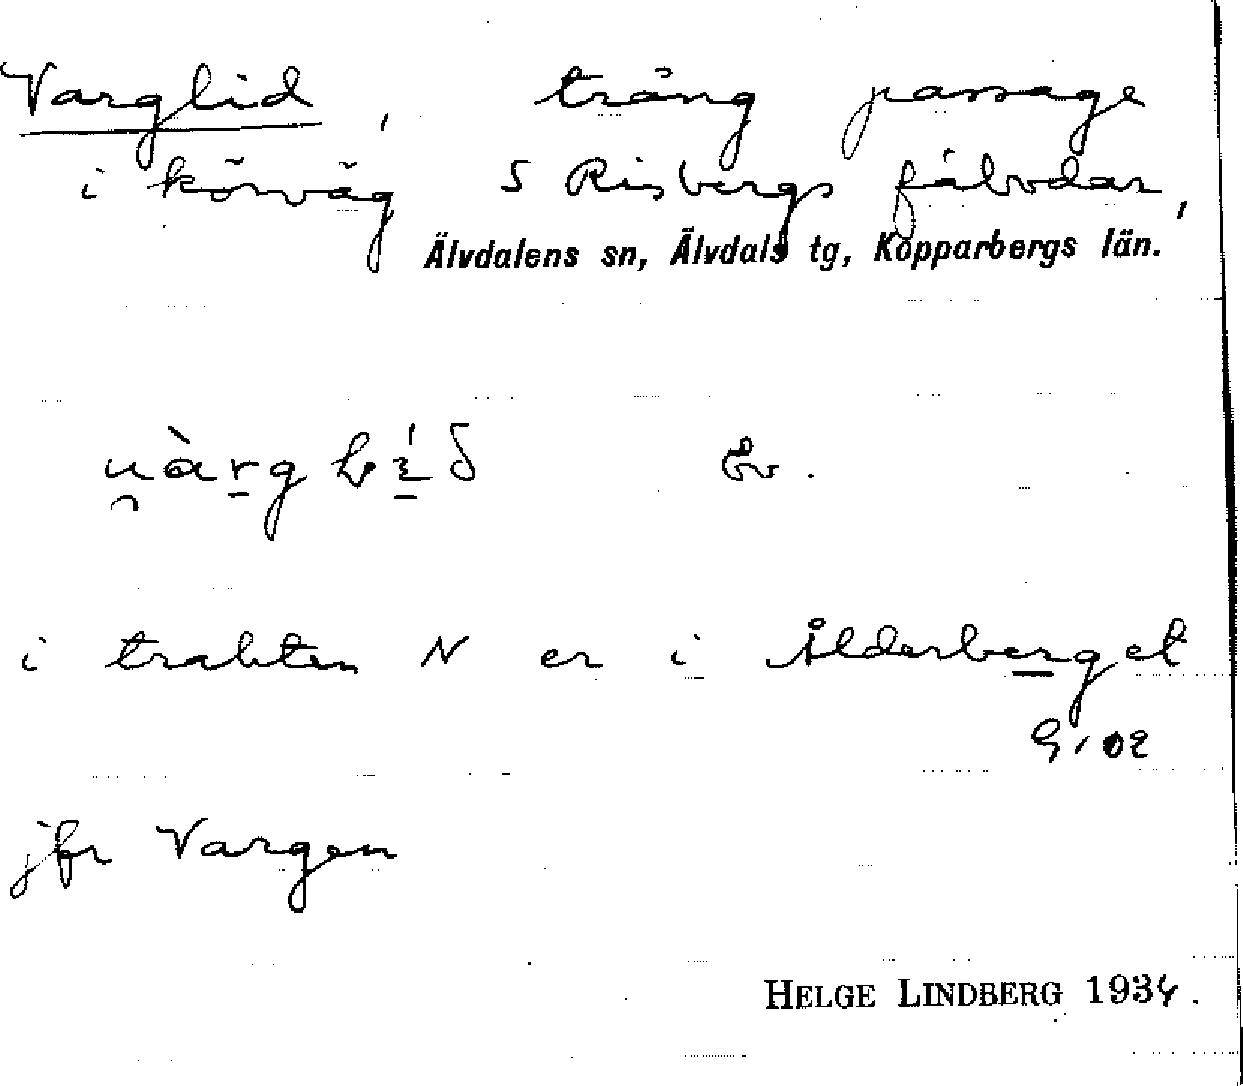 Varglid, trång passage
i körväg S Risbergs fäbodar,
Älvdalens sn, Älvdals tg, Kopparbergs län.
Äv.
i trakten N er i Ålderberget
jfr Vargen
HELGE LINDBERG 1934.